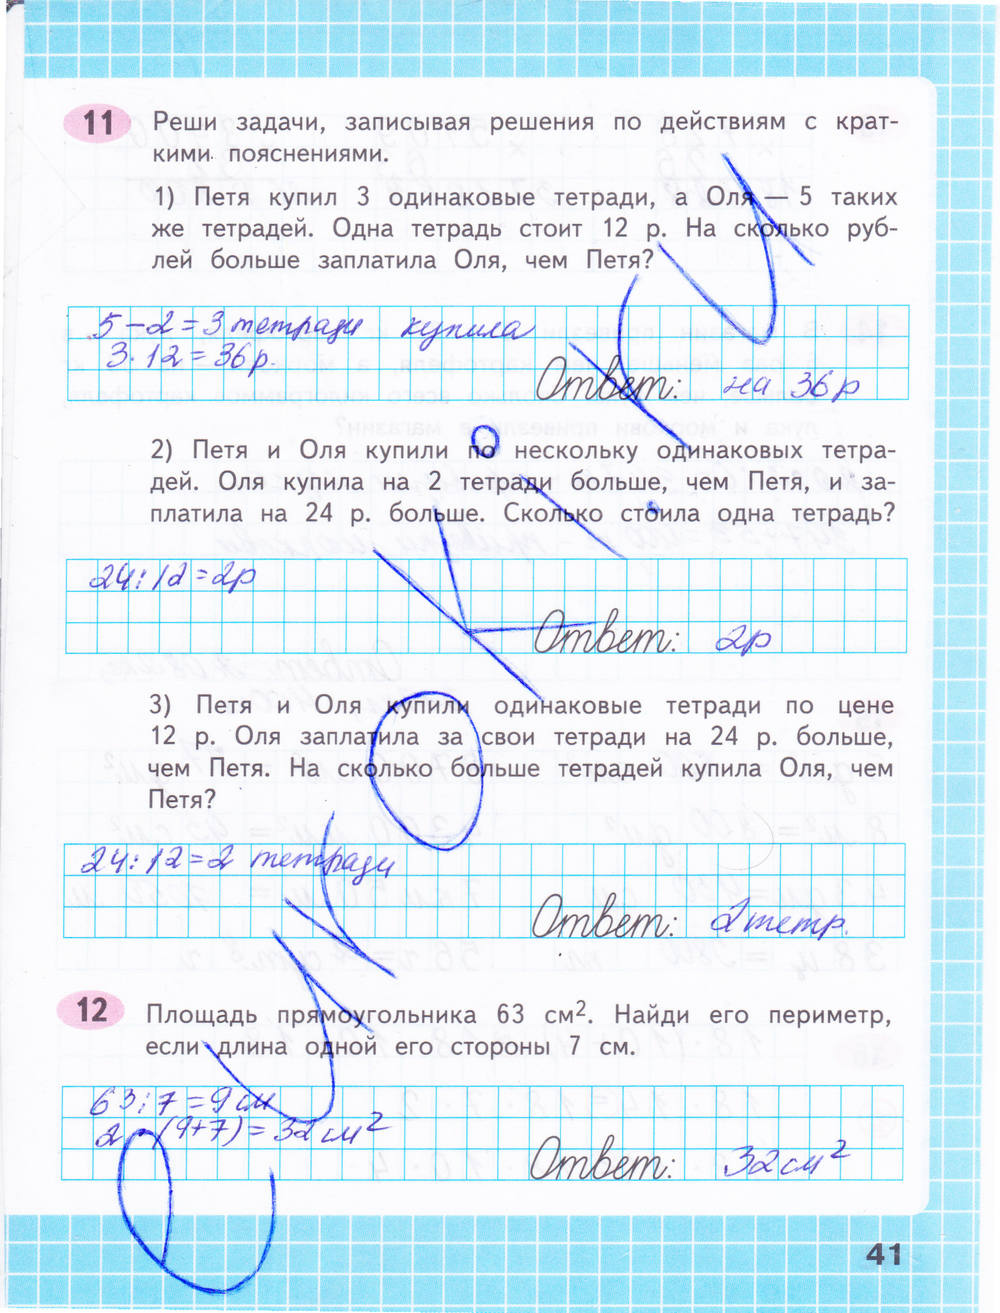 11 Реши задачи, записывая решения по действиям с крат-
кими пояснениями.
1) Петя купил 3 одинаковые тетради, а Оля — 5 таких
же тетрадей. Одна тетрадь стоит 12 р. На сколько руб-
лей больше заплатила Оля, чем Петя?
5 - 2 = 3 тетради купила
3 · 12 = 36 р.
Ответ: на 36 р
2) Петя и Оля купили по нескольку одинаковых тетра-
дей. Оля купила на 2 тетради больше, чем Петя, и за-
платила на 24 р. больше. Сколько стоила одна тетрадь?
24 : 12 = 2р
Ответ: 2р
3) Петя и Оля купили одинаковые тетради по цене
12 р. Оля заплатила за свои тетради на 24 р. больше,
чем Петя. На сколько больше тетрадей купила Оля, чем
Петя?
24 : 12 = 2 тетради
Ответ: 2 тетр.
12 Площадь прямоугольника 63 см². Найди его периметр,
если длина одной его стороны 7 см.
63 : 7 = 9 см
2 · (9+7) = 32 см²
Ответ: 32 см²
41